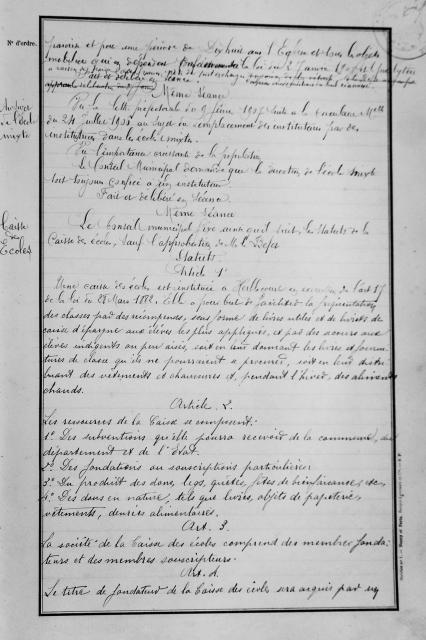 N° d'ordre.
paroisse et pour une période de Dix huit ans l'Eglise et tous les objets
mobiliers qui en dépendent conformément à la loi du 2 Janvier 1907
Fait et délibéré en séance
Même séance
Vu la lettre préfectorale du 9 Janvier 1907 suite à la circulaire Mlle
du 24 Juillet 1905 au sujet du remplacement des instituteurs par des
institutrices dans les écoles mixtes.
Vu l'importance croissante de la population
Le Conseil Municipal demande que la direction de l'école mixte
soit toujours confiée à un instituteur.
Fait et délibéré en séance
Même séance
Caisse
des
Ecoles
Le Conseil municipal fixe ainsi qu'il suit, les statuts de la
Caisse des écoles, sauf l'approbation de M. le Préfet
Statuts
Article 1er
Une caisse des écoles est instituée à en exécution de l'art 17
de la loi du 28 Mars 1882. Elle a pour but de faciliter la fréquentation
des classes par des récompenses, sous forme de livres utiles et de livrets de
caisse d'épargne aux élèves les plus appliqués, et par des secours aux
élèves indigents ou peu aisés, soit en leur donnant les livres et fourni-
tures de classe qu'ils ne pourraient se procurer, soit en leur distri-
buant des vêtements et chaussures et, pendant l'hiver, des aliments
chauds.
Article 2.
Les ressources de la Caisse se composent:
1° Des subventions qu'elle pourra recevoir de la commune, du
département et de l'Etat.
2° Des fondations ou souscriptions particulières
3° Du produit des dons, legs, quêtes, fêtes de bienfaisance, etc
4° Des dons en nature, tels que livres, objets de papeterie,
vêtements, denrées alimentaires.
Art. 3.
La société de la Caisse des écoles comprend des membres fonda-
teurs et des membres souscripteurs.
Art. 4.
Le titre de fondateur de la Caisse des écoles sera acquis par un